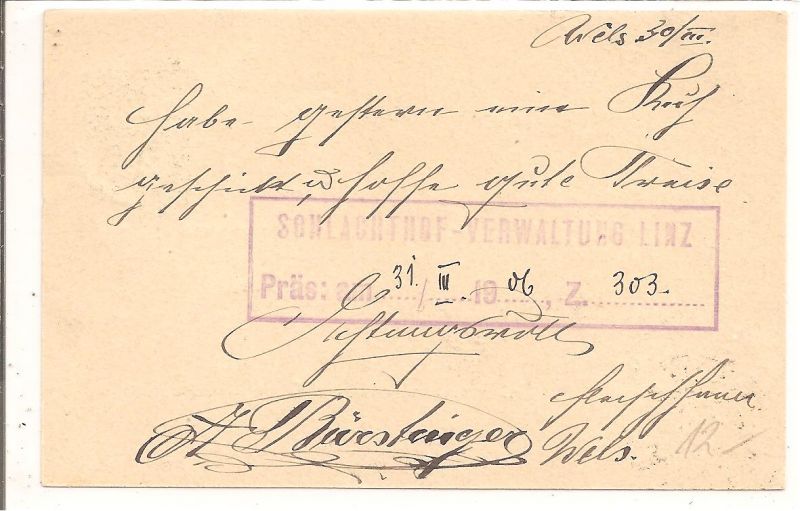 Wels 30/III.
habe gestern eine Kuh
geschickt, u hoffe gute Preise
SCHLACHTHOF-VERWALTUNG LINZ
Präs: am 31./III. 1906, Z. 303.
Achtungsvoll
Fleischhauer
Wels.
12